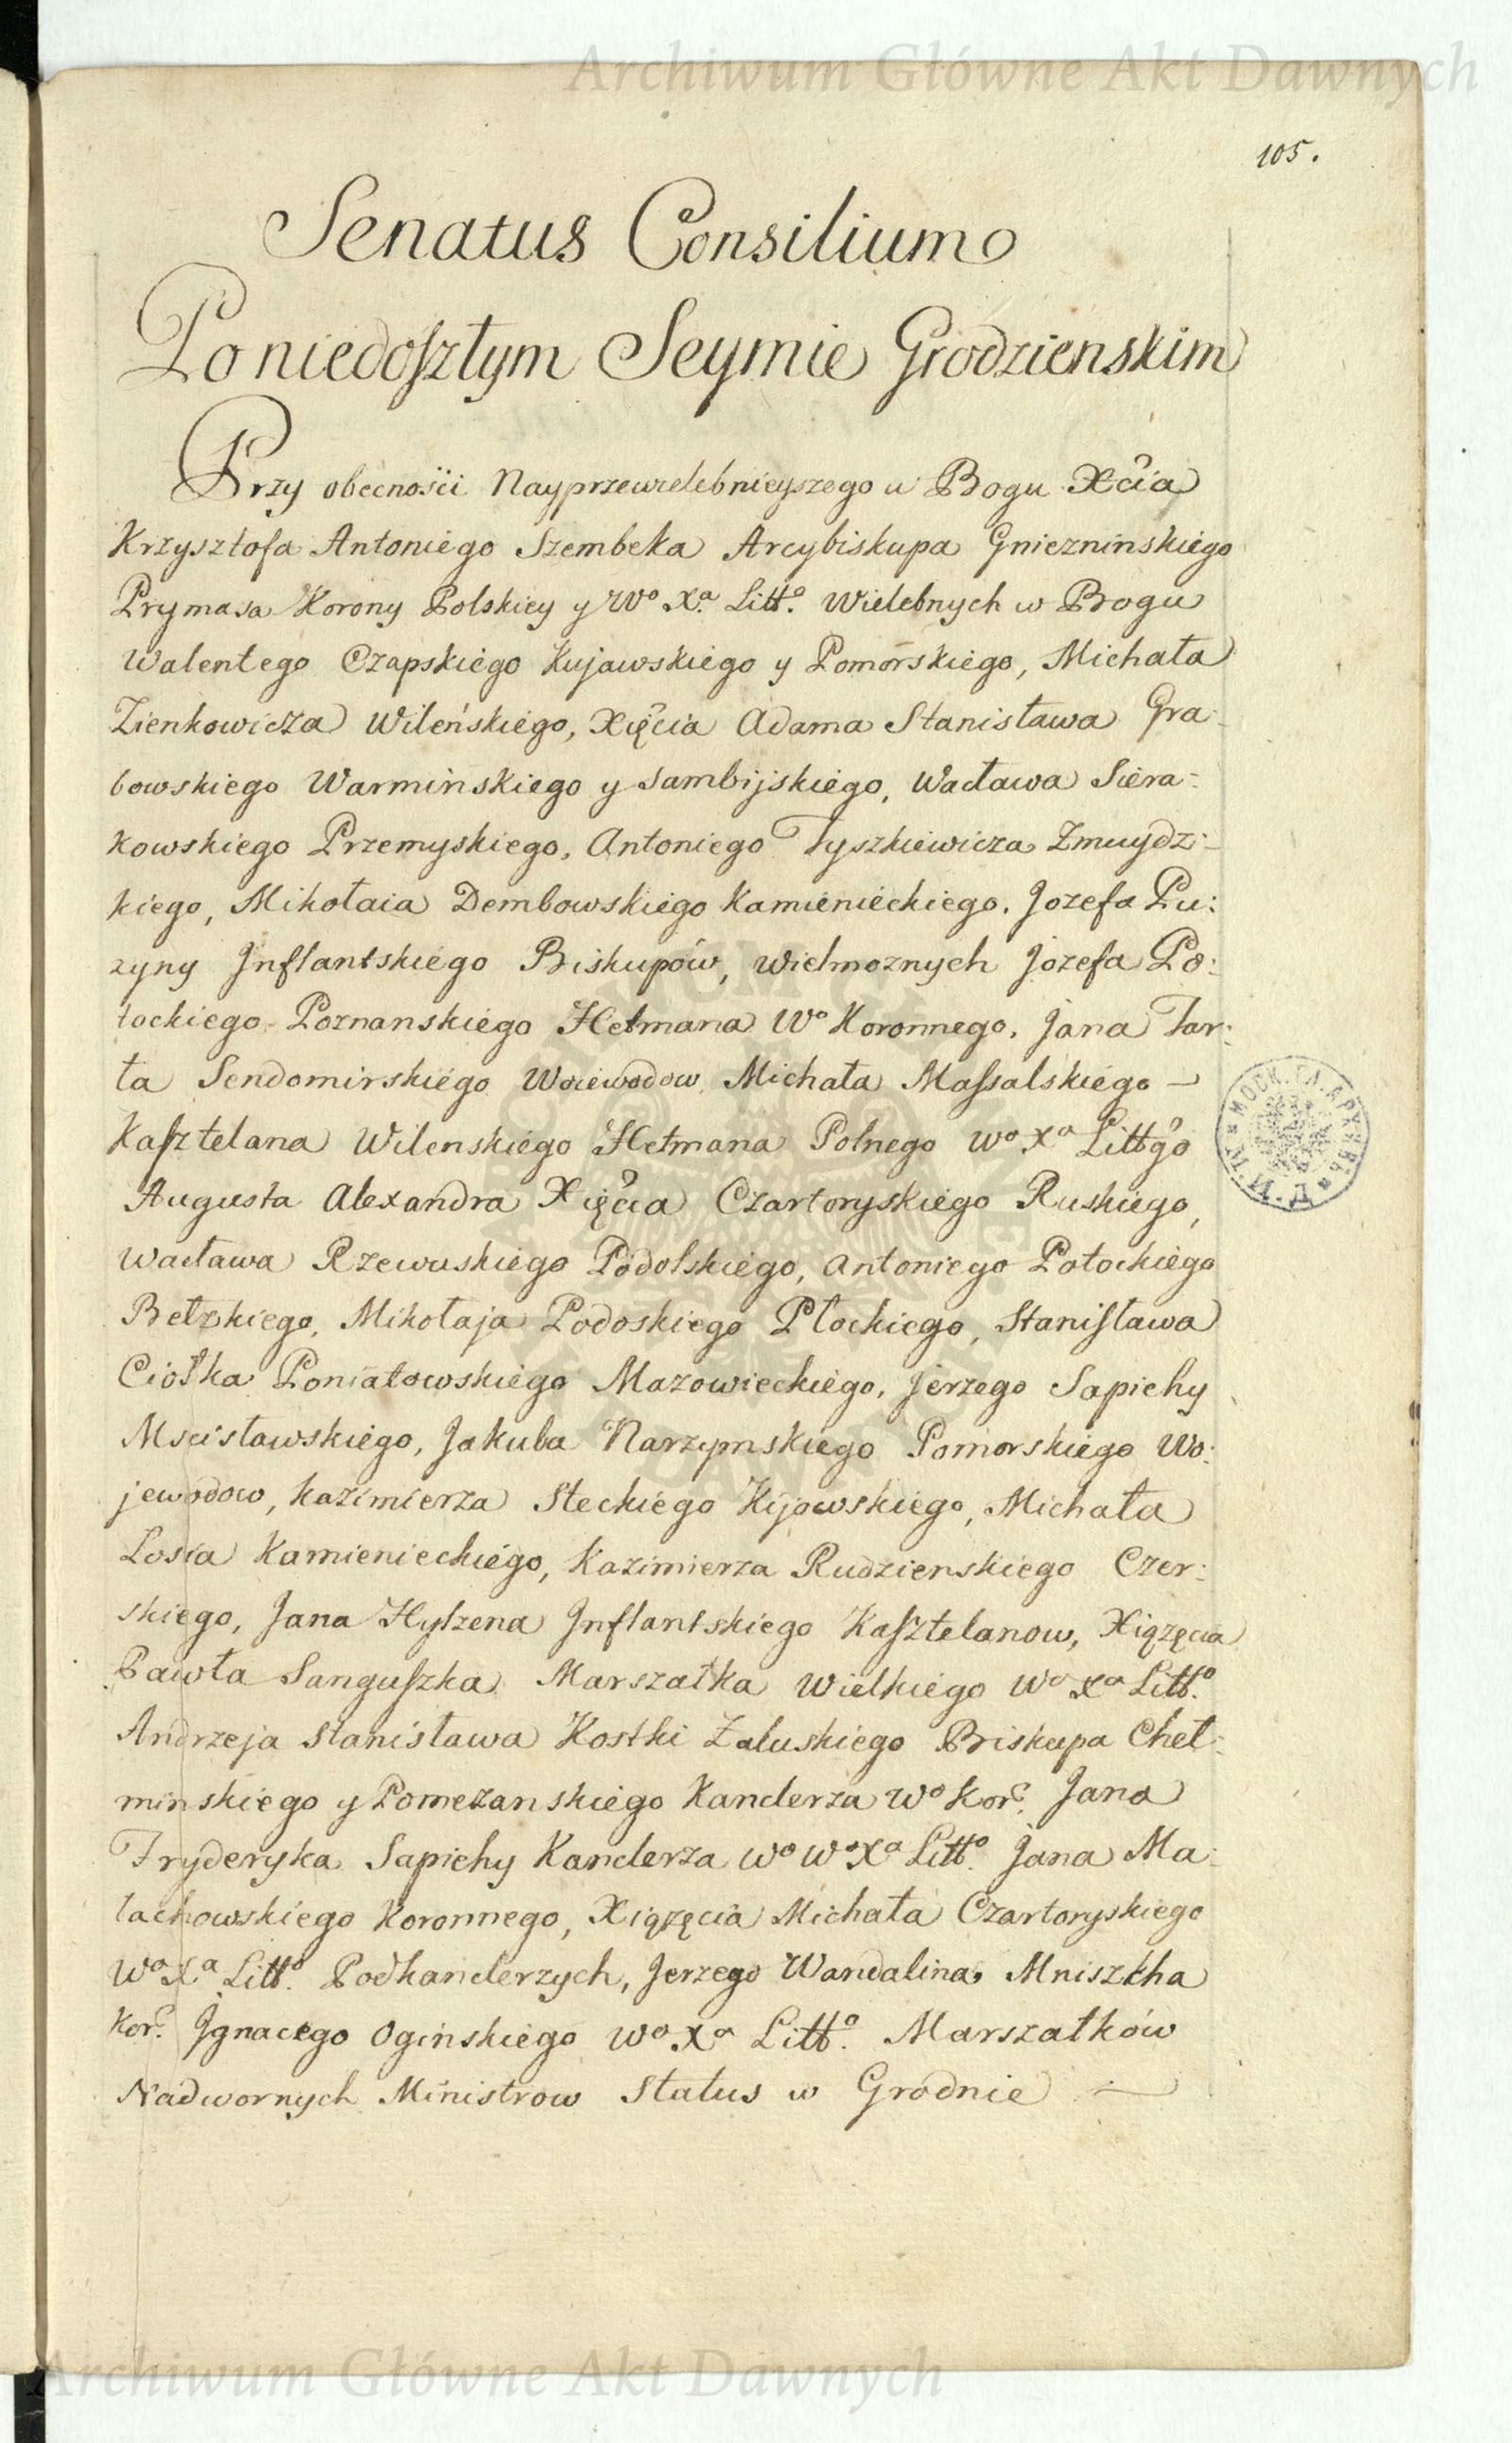 Archiwum Główne Akt Dawnych
105.
Senatus Consilium
Po niedoſzłym Seymie Grodzienskim
Przy obecnosci Nayprzewielebnieyszego w Bogu Xcia
Krzysztofa Antoniego Szembeka Arcybiskupa Gniezninskiego
Prymasa Korony Polskiey y Wo Xa Litto. Wielebnych w Bogu
Walentego Czapskiego Kujawskiego y Pomorskiego, Michała
Zienkowicza Wileńskiego, Xięcia Adama Stanisława Gra-
bowskiego Warminskiego y Sambijskiego, Wacława Siera-
kowskiego Przemyskiego, Antoniego Tyszkiewicza Zmuydz-
kiego, Mikołaia Dembowskiego Kamienieckiego, Jozefa Pu:
zyny Inflantskiego Biskupów, Wielmoznych Jozefa Po:
tockiego Poznanskiego Hetmana Wo Koronnego, Jana Tar:
ła Sendomirskiego Woiewodow, Michała Maſsalskiego —
Kaſztelana Wilenskiego Hetmana Polnego Wo Xa Littgo
Augusta Alexandra Xięcia Czartoryskiego Ruskiego,
Wacława Rzewuskiego Podolskiego, Antoniego Potockiego
Bełzkiego, Mikołaja Podoskiego Płockiego, Staniſława
Ciołka Poniatowskiego Mazowieckiego, Jerzego Sapiehy
Mscisławskiego, Jakuba Narzymskiego Pomorskiego Wo:
jewodow, Kazimierza Steckiego Kijowskiego, Michała
Łosia Kamienieckiego, Kazimierza Rudzienskiego Czer:
skiego, Jana Hylzena Inflantskiego Kaſztelanow, Xiązęcia
Pawła Sanguſzka Marszałka Wielkiego Wo Xa Litto.
Andrzeja Stanisława Kostki Załuskiego Biskupa Cheł-
minskiego y Pomezanskiego Kanclerza Wo Kor. Jana
Fryderyka Sapiehy Kanclerza Wo Wo Xa Litto. Jana Ma-
łachowskiego Koronnego, Xiązęcia Michała Czartoryskiego
Wo Xa Litto. Podkanclerzych, Jerzego Wandalina Mniszcha
Kor. Ignacego Oginskiego Wo Xa Litto. Marszałków
Nadwornych Ministrow Status w Grodnie —
Archiwum Główne Akt Dawnych